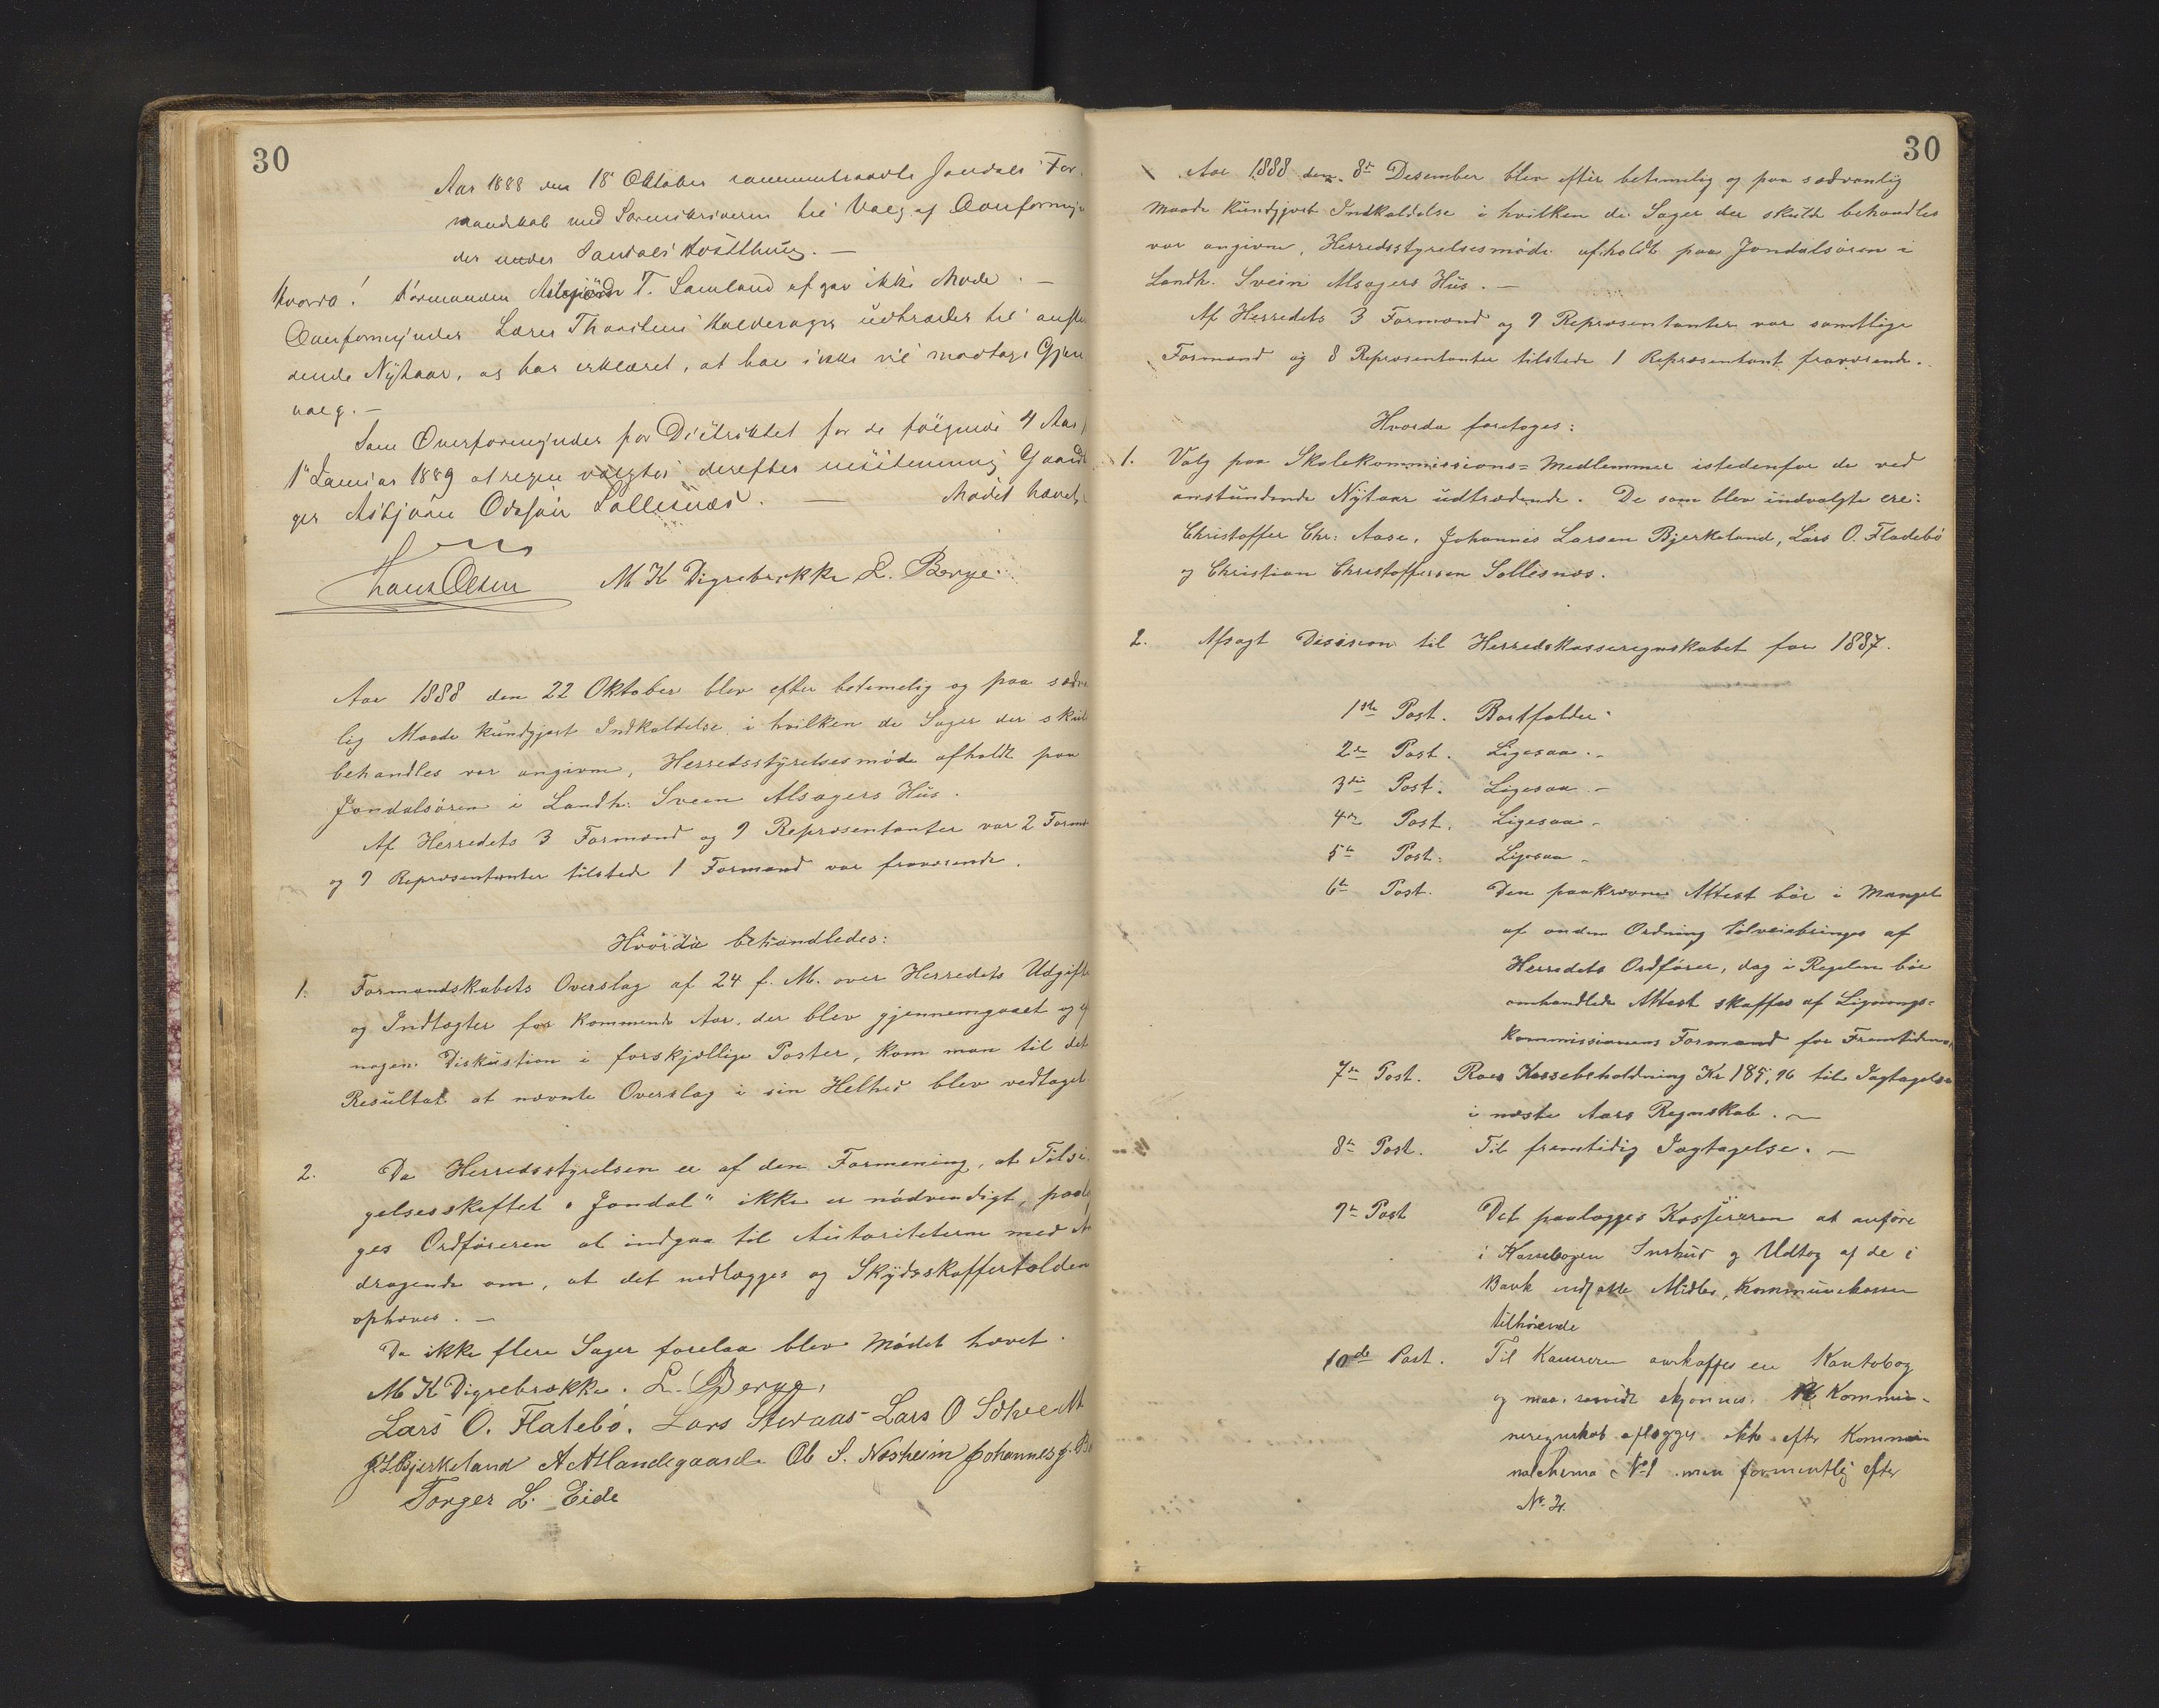 30
Aar 1888 den 18 Oktober sammentraadte Jondals For-
mandskab med Sorenskriveren til Valg af Overformyn
der under Jondals
Hvorda! Formanden Asbjörn T. Samland afgav ikke Möde. —
Overformynder Lærer Thorstein Halderager udtræder til anstun
dende Nytaar, og har erklæret, at han ikke vil modtage Gjen
valg. —
Som Overformynder for Distriktet for de følgende 4 Aar
1 Januar 1889 at regne valgtes derefter enstemmig Gaard
ger Asbjørn Oddsen Sollesnæs. — Mödet hævet.
Hans Olsen M K Digrebrække L. Berge.
Aar 1888 den 22 Oktober blev efter betimelig og paa sædvan
lig Maade kundgjort Indkaldelse i hvilken de Sager der skul
behandles var angivne, Herredsstyrelsesmöde afholdt paa
Jondalsören i Landh. Svein Alsagers Hus.
Af Herredets 3 Formænd og 9 Repræsentanter var 2 Formæ
og 9 Repræsentanter tilstede 1 Formand var fraværende.
Hvorda behandledes:
1. Formandskabets Overslag af 24 f. M. over Herredets Udgifte
og Indtægter for kommende Aar, der blev gjennemgaaet og e
nogen Diskustion i forskjællige Poster, kom man til det
Resultat at nævnte Overslag i sin Helhed blev vedtaget
2. Da Herredsstyrelsen er af den Formening, at Tilsi-
gelsesskiftet "Jondal" ikke er nödvendigt, paalæ
ges Ordföreren at indgaa til Autoriteterne med An
dragende om, at det nedlægges og Skydsskafferholden
ophæves. —
Da ikke flere Sager forelaa blev Mödet hævet.
M K Digrebrække. L. Berge,
Lars O. Flatebö. Lars Lars O
J L Bjerkeland A Aalandsgaard Ole S. Næsheim Johannes J.
Torger L. Eide
30
Aar 1888 den 8de Desember blev efter betimelig og paa sædvanlig
Maade kundgjort Indkaldelse i hvilken de Sager der skulde behandles
var angivne, Herredsstyrelsesmöde afholdt paa Jondalsören i
Landh. Svein Alsagers Hus. —
Af Herredets 3 Formænd og 9 Repræsentanter var samtlige
Formænd og 8 Repræsentanter tilstede 1 Repræsentant fraværende.
Hvorda foretoges:
1. Valg paa Skolekommissions= Medlemmer istedenfor de ved
anstundende Nytaar udtrædende. De som blev indvalgte ere:
Christoffer Chr: Aase, Johannes Larsen Bjerkeland, Lars O. Fladebö
og Christian Christoffersen Sollesnæs.
2. Afsagt Desision til Herredskasseregnskabet for 1887.
1ste Post. Bortfalder.
2den Post. Ligesaa. —
3die Post. Ligesaa —
4de Post. Ligesaa —
5te Post. Ligesaa —
6te Post. Den paakrævne Attest bör i Mangel
af anden Ordning tilveiebringes af
Herredets Ordförer, dog i Regelen bör
omhandlede Attest skaffes af Lignings-
kommissionens Formand for Fremtiden.
7de Post. Kassebeholdning Kr 185,96 til Iagtagelse
i næste Aars Regnskab. —
8de Post. Til fremtidig Iagtagelse. —
9de Post Det paalægges Kasséreren at anföre
i Kassebogen Inskud og Udtag af de i
Bank indsatte Midler, Kommunekassen
tilhörende
10de Post. Til Kasseren anskaffes en Kontobog
og maa skjönnes. At Kommu-
neregnskab aflægges ikke efter Kommu-
nalskema No 1 men formentlig efter
No 2.